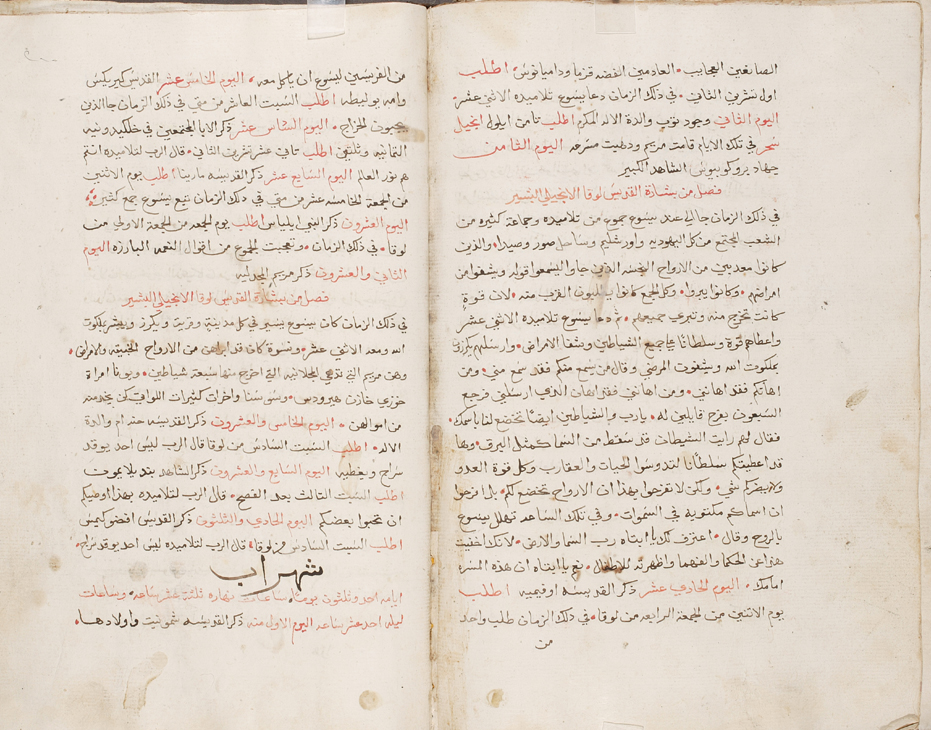 الصانعين العجايب العادمين الفضه قزما وداميانوس اطلب
اول تشرين الثاني في ذلك الزمان دعا يسوع تلاميذه الاثني عشر
اليوم الثاني وجود ثوب والدة الاله المكرم اطلب ثامن ايلول انجيل
سحر في تلك الايام قامت مريم وذهبت مسرعه اليوم الثامن
جهاد بروكوبيوس الشاهد الكبير
فصل من بشارة القديس لوقا الانجيلي البشير
في ذلك الزمان جا الي عند يسوع جموع من تلاميذه وجماعة كثيره من
الشعب المجتمع من كل اليهوديه واورشليم وساحل صور وصيدا والذين
كانوا معذبين من الارواح النجسه الذين جاوا ليسمعوا قوله ويشفوا من
امراضهم وكانوا يبروا وكل الجمع كانوا يطلبون القرب منه لان قوة
كانت تخرج منه وتبري جميعهم ثم دعا يسوع تلاميذه الاثني عشر
واعطاهم قوة وسلطانا علي جميع الشياطين وشفا الامراض وارسلهم يكرزون
بملكوت الله ويشفوا المرضي وقال من سمع منكم فقد سمع مني ومن
اهانكم فقد اهانني ومن اهانني فقد اهان الذي ارسلني فرجع
السبعون بفرح قايلين له يا رب والشياطين ايضا تخضع لنا باسمك
فقال لهم رايت الشيطان قد سقط من السما كمثل البرق وها
قد اعطيتكم سلطانا لتدوسوا الحيات والعقارب وكل قوة العدو
ولا يضركم شي ولكن لا تفرحوا بهذا ان الارواح تخضع لكم بل افرحوا
ان اسماكم مكتوبة في السموات وفي تلك الساعه تهلل يسوع
بالروح وقال اعترف لك يا ابتاه رب السما والارض لانك اخفيت
هذا عن الحكما والفهما واظهرته للاطفال نعم يا ابتاه ان هذه المسره
امامك اليوم الحادي عشر ذكر القديسه اوفيميه اطلب
يوم الاثنين من الجمعة الرابعه من لوقا في ذلك الزمان طلب واحد
من
من الفريسيين ليسوع ان ياكل معه اليوم الخامس عشر القديس كيريكس
وامه يوليطه اطلب السبت العاشر من متي في ذلك الزمان جا الذين
يجبون الخراج اليوم السادس عشر ذكر الابا المجتمعين في خلكيدونيه
الثمانيه وثلثين اطلب ثاني عشر تشرين الثاني قال الرب لتلاميذه انتم
هم نور العالم اليوم السابع عشر ذكر القديسه مارينا اطلب يوم الاثنين
من الجمعة الخامسه عشر من متي في ذلك الزمان تبع يسوع جمع كثير
اليوم العشرون ذكر النبي ايلياس اطلب يوم الجمعه من الجمعة الاولي من
لوقا في ذلك الزمان وتعجبت الجموع من اقوال النعمه البارزه اليوم
الثاني والعشرون ذكر مريم المجدليه
فصل من بشارة القديس لوقا الانجيلي البشير
في ذلك الزمان كان يسوع يسير في كل مدينة وقرية ويكرز ويبشر بملكوت
الله ومعه الاثني عشر ونسوة كان قد ابراهن من الارواح الخبيثه والامراض
وهن مريم التي تدعي المجدلانيه التي اخرج منها سبعة شياطين ويونا امراة
خوزي خازن هيرودس وسوسنا واخرات كثيرات اللواتي كن يخدمنه
من اموالهن اليوم الخامس والعشرون ذكر القديسه حنه ام والدة
الاله اطلب السبت السادس من لوقا قال الرب ليس احد يوقد
سراج ويغطيه اليوم السابع والعشرون ذكر الشاهد بندلايمون
اطلب السبت الثالث بعد الفصح قال الرب لتلاميذه بهذا اوصيكم
ان تحبوا بعضكم اليوم الحادي والثلثون ذكر القديس افضوكيمس
اطلب السبت السادس من لوقا قال الرب لتلاميذه ليس احد يوقد سراج
شهر اب
ايامه احد وثلثون يوما ساعات نهاره ثلثة عشر ساعه وساعات
ليله احد عشر ساعه اليوم الاول منه ذكر القديسه شمونيت واولادها